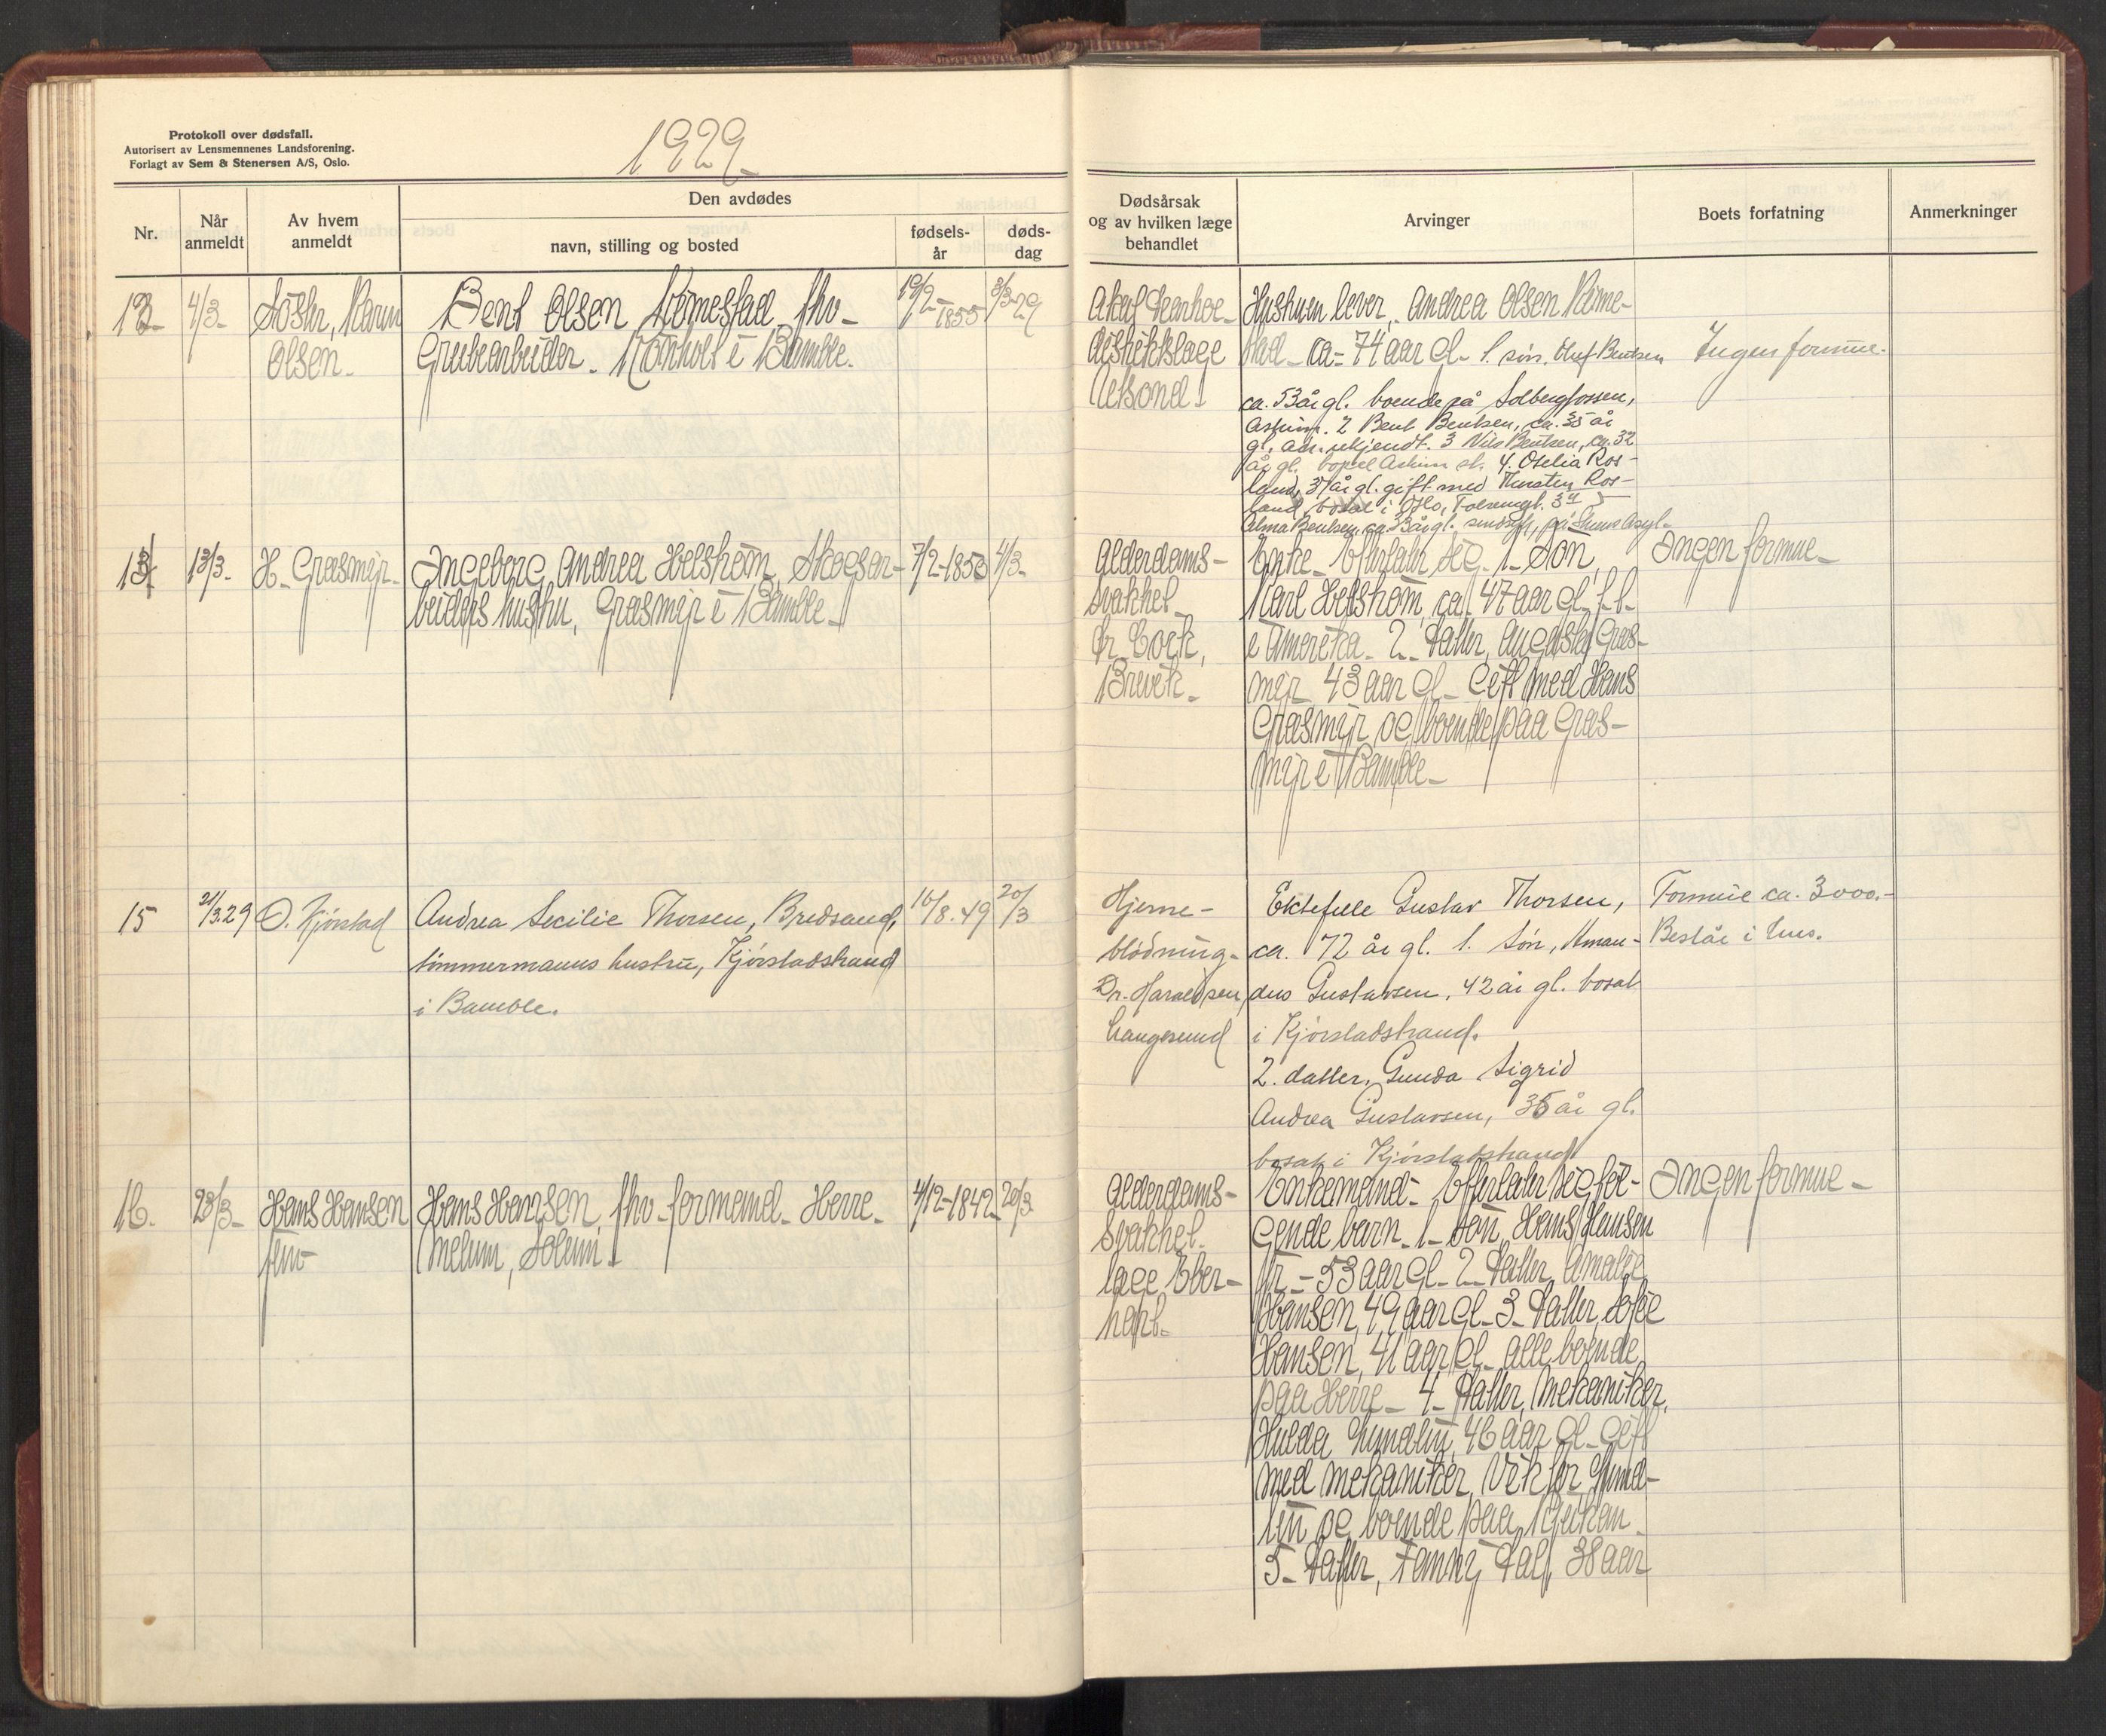 Protokoll over dødsfall.
Autorisert av Lensmennenes Landsforening.
Forlagt av Sem & Stenersen A/S, Oslo.
1929
Nr.
Når
anmeldt
Av hvem
anmeldt
Den avdødes
navn, stilling og bosted
fødsels-
år
døds-
dag
Dødsårsak
og av hvilken læge
behandlet
Arvinger
Boets forfatning
Anmerkninger
13-
4/3-
Karen
Olsen-
Bent Olsen fhv-
Grubearbeider- i Bamble.
19/2-1855
3/3-29
Akut
Distriktslæge
Hustruen lever, Andrea Olsen
ca- 74 aar gl- 1. søn, Oluf Bentsen
ca. 53 år gl. boende på Solbergfossen,
Askim. 2 Bent Bentsen, ca. 35 år
gl. adr. ukjendt. 3 Nils Bentsen, ca. 32
år gl. bopel Askim st. 4. Otelia Ros-
land, 37 år gl. gift med Ros-
land, bosat i Oslo,
Alma Bentsen, ca. år gl.
Ingen formue.
14
13/3-
H- Grasmyr-
Ingeborg Andrea Helstrøm, Skogsar-
beiders hustru, Grasmyr i Bamble-
7/2-1853
4/3-
Alderdoms-
svakhet-
dr. Cock,
Brevik-
Enke- Efterlater seg- 1- Søn,
Karl Helstrøm, ca. 47 aar gl- f.t.
i Amerika- 2- Datter, Augusta Gras-
myr- 43 aar gl- Gift med Hans
Grasmyr og boende paa Gras-
myr i Bamble-
Ingen formue-
15
21/3.29
O. Kjørstad
Andrea Secilie Thorsen, Bredsand,
tømmermanns hustru, Kjørstadstrand
i Bamble.
16/8.49
20/3
Hjerne-
blødning-
Dr. Haraldsen,
Langesund
Ektefelle Gustav Thorsen,
ca. 72 år gl. 1. søn, Aman-
dus Gustavsen, 42 år gl. bosat
i Kjørstadstrand.
2. datter, Gunda Sigrid
Andrea Gustavsen, 35 år gl.
bosat i Kjørstadstrand
Formue ca. 3000.-
Består i hus.
16.
23/3-
Hans Hansen
jun-
Hans Hansen, fhv- formand- Herre-
Melum, Solum
4/12-1842-
20/3
Alderdoms-
svakhet-
læge Eber-
hart-
Enkemand- Efterlater seg føl-
gende barn- 1- Søn, Hans Hansen
jr.- 53 aar gl- 2- Datter, Amalie
Hansen, 49 aar gl- 3- Datter, Sofie
Hansen, 41 aar gl- alle boende
paa Herre- 4- Datter, Mekaniker,
Hulda Lundlin, 46 aar gl- Gift
med mekaniker, Viktor Lund-
lin og boende paa Rjukan-
5- Datter, Fanny Dal, 38 aar
Ingen formue-